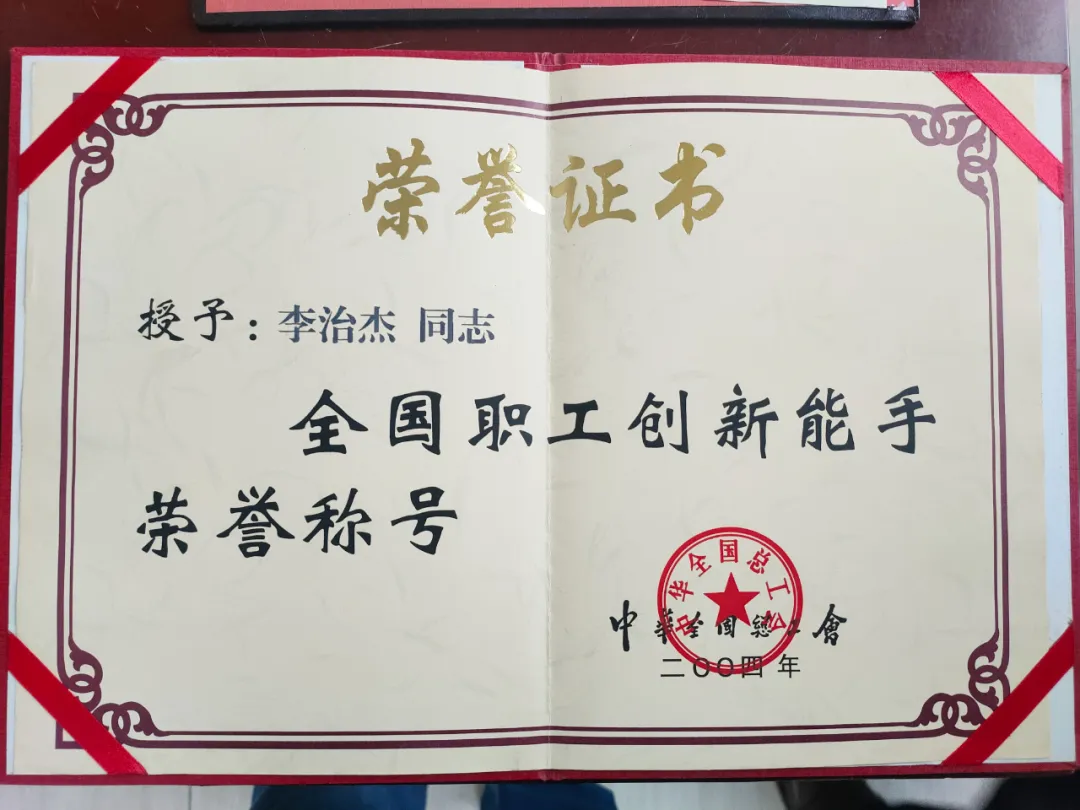 荣誉证书
授予:李治杰 同志
全国职工创新能手
荣誉称号
中华全国总工会
中華全国總工會
二〇〇四 年